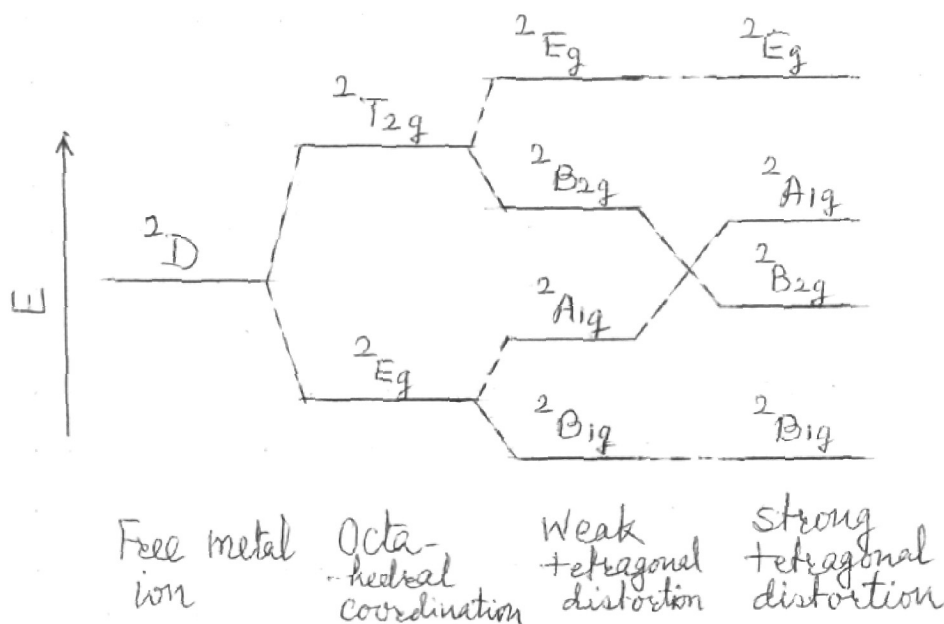 ²Eg
²Eg
²T₂g
²B₂g
²A₁g
²D
²B₂g
²A₁g
E
²Eg
²B₁g
²B₁g
Free metal
ion
Octa-
-hedral
coordination
Weak
tetragonal
distortion
Strong
tetragonal
distortion